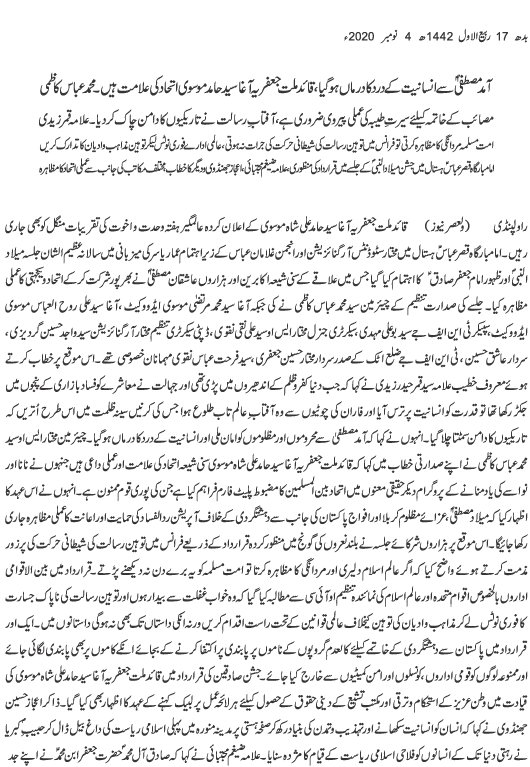 بدھ 17 ربیع الاول 1442ھ 4 نومبر 2020ء
آمد مصطفیؐ سے انسانیت کے درد کا درماں ہو گیا، قائد ملت جعفریہ آغا سید حامد موسوی اتحاد کی علامت ہیں۔ محمد عباس کاظمی
مصائب کے خاتمہ کیلئے سیرت طیبہ کی عملی پیروی ضروری ہے، آفتاب رسالت نے تاریکیوں کا دامن چاک کر دیا۔ علامہ قمر زیدی
امت مسلمہ مردانگی کا مظاہرہ کرتی تو فرانس میں توہین رسالت کی شیطانی حرکت کی جرات نہ ہوتی، عالمی ادارے فوری نوٹس لیکر توہین مذاہب و ادیان کا تدارک کریں
امام بارگاہ قصر عباسؑ ہستال میں جشن میلاد النبیؐ کے جلسے میں قرارداد کی منظوری، علامہ ضیغم مجتبائی، اعجاز جھنڈوی و دیگر کا خطاب مختلف مکاتب کی جانب سے عملی اتحاد کا مظاہرہ
راولپنڈی (بلعصر نیوز) قائد ملت جعفریہ آغا سید حامد علی شاہ موسوی کے اعلان کردہ عالمگیر ہفتہ وحدت و اخوت کی تقریبات منگل کو بھی جاری
رہیں۔ امام بارگاہ قصر عباسؑ ہستال میں مختار سٹوڈنٹس آرگنائزیشن اور انجمن غلامان عباس کے زیر اہتمام عمار یاسر کی میزبانی میں سالانہ عظیم الشان جلسہ میلاد
النبیؐ اور ظہور امام جعفر صادقؑ کا اہتمام کیا گیا جس میں علاقے کے سنی شیعہ اکابرین اور ہزاروں عاشقان مصطفیؐ نے بھرپور شرکت کر کے اتحاد و یکجہتی کا عملی
مظاہرہ کیا۔ جلسے کی صدارت تنظیم کے چیئرمین سید محمد عباس کاظمی نے کی جبکہ آغا سید محمد مرتضیٰ موسوی ایڈووکیٹ، آغا سید علی روح العباس موسوی
ایڈووکیٹ، سیکرٹری ٹی این ایف جے سید بوعلی مہدی، سیکرٹری جنرل مختار ایس او سید علی نقی نقوی، ڈپٹی سیکرٹری تنظیم مختار آرگنائزیشن سید واجد حسین گردیزی،
سردار عاشق حسین، ٹی این ایف جے ضلع اٹک کے صدر سردار مختار حسین جعفری، سید فرحت عباس نقوی مہمانان خصوصی تھے۔ اس موقع پر خطاب کرتے
ہوئے معروف خطیب علامہ سید قمر حیدر زیدی نے کہا کہ جب دنیا کفر و ظلم کے اندھیروں میں پڑی تھی اور جہالت نے معاشرے کو فساد بازاری کے پنجوں میں
جکڑ رکھا تھا تو قدرت کو انسانیت پر ترس آیا اور فاران کی چوٹیوں سے وہ آفتاب عالم تاب طلوع ہوا جس کی کرنیں سینہ ظلمت میں اس طرح اتریں کہ
تاریکیوں کا دامن سمٹتا چلا گیا۔ انہوں نے کہا کہ آمد مصطفیؐ سے محروموں اور مظلوموں کو امان ملی اور انسانیت کے درد کا درماں ہو گیا۔ چیئرمین مختار ایس او سید
محمد عباس کاظمی نے اپنے صدارتی خطاب میں کہا کہ قائد ملت جعفریہ آغا سید حامد علی شاہ موسوی سنی شیعہ اتحاد کی علامت اور عملی داعی ہیں جنہوں نے نانا اور
نواسے کی یاد منانے کے پروگرام دیکر حقیقی معنوں میں اتحاد بین المسلمین کا مضبوط پلیٹ فارم فراہم کیا ہے جن کی پوری قوم ممنون ہے۔ انہوں نے اس عہد کا
اظہار کیا کہ میلاد مصطفیؐ و عزائے مظلوم کربلا اور افواج پاکستان کی جانب سے دہشتگردی کے خلاف آپریشن رد الفساد کی حمایت اور اعانت کا عملی مظاہرہ جاری
رکھا جائیگا۔ اس موقع پر ہزاروں شرکائے جلسہ نے بلند نعروں کی گونج میں منظور کردہ قرارداد کے ذریعے فرانس میں توہین رسالت کی شیطانی حرکت کی پر زور
مذمت کرتے ہوئے واضح کیا کہ اگر عالم اسلام دلیری اور مردانگی کا مظاہرہ کرتا تو امت مسلمہ کو یہ برے دن نہ دیکھنے پڑتے۔ قرارداد میں بین الاقوامی
اداروں بالخصوص اقوام متحدہ اور عالم اسلام کی نمائندہ تنظیم او آئی سی سے مطالبہ کیا گیا کہ وہ خواب غفلت سے بیدار ہوں اور توہین رسالت کی ناپاک جسارت
کا فوری نوٹس لے کر مذاہب و ادیان کی توہین کیخلاف عالمی قوانین کے تحت راست اقدام کریں ورنہ انکی داستاں تک بھی نہ ہوگی داستانوں میں۔ ایک اور
قرارداد میں پاکستان سے دہشتگردی کے خاتمے کیلئے کالعدم گروپوں کے ناموں پر پابندی پر اکتفا کرنے کے بجائے انکے کاموں پر بھی پابندی لگائی جائے
اور ممنوعہ لوگوں کو قومی اداروں، کونسلوں اور امن کمیٹیوں سے خارج کیا جائے۔ جشن صادقین کی قرارداد میں قائد ملت جعفریہ آغا سید حامد علی شاہ موسوی کی
قیادت میں وطن عزیز کے استحکام و ترقی اور مکتب تشیع کے دینی حقوق کے حصول کیلئے ہر لائحہ عمل پر لبیک کہنے کے عہد کا اظہار بھی کیا گیا۔ ذاکر اعجاز حسین
جھنڈوی نے کہا کہ انسان کو انسانیت سکھانے اور تہذیب و تمدن کی بنیاد رکھ کر صفحہ ہستی پر مدینہ منورہ میں پہلی اسلامی ریاست کی داغ بیل ڈال کر حبیب کبریا
نے رہتی دنیا تک کے انسانوں کو فلاحی اسلامی ریاست کے قیام کا مژدہ سنایا۔ علامہ ضیغم مجتبائی نے کہا کہ صادق آل محمدؐ حضرت جعفر ابن محمدؑ نے اپنے جد